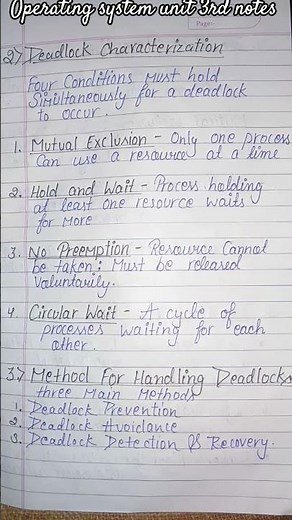 Operating system unit 3rd notes
Page:
2) Deadlock Characterization
Four Conditions Must hold
Simultaneously for a deadlock
to occur.
1. Mutual Exclusion - Only one process
Can use a resource at a time
2. Hold and Wait - Process holding
at least one resource waits
for More
3. No Preemption - Resource Cannot
be taken; Must be released
Voluntarily.
4. Circular Wait - A cycle of
processes waiting for each
other.
3) Method For Handling Deadlocks
three Main Methods
1. Deadlock Prevention
2. Deadlock Avoidance
3. Deadlock Detection & Recovery.